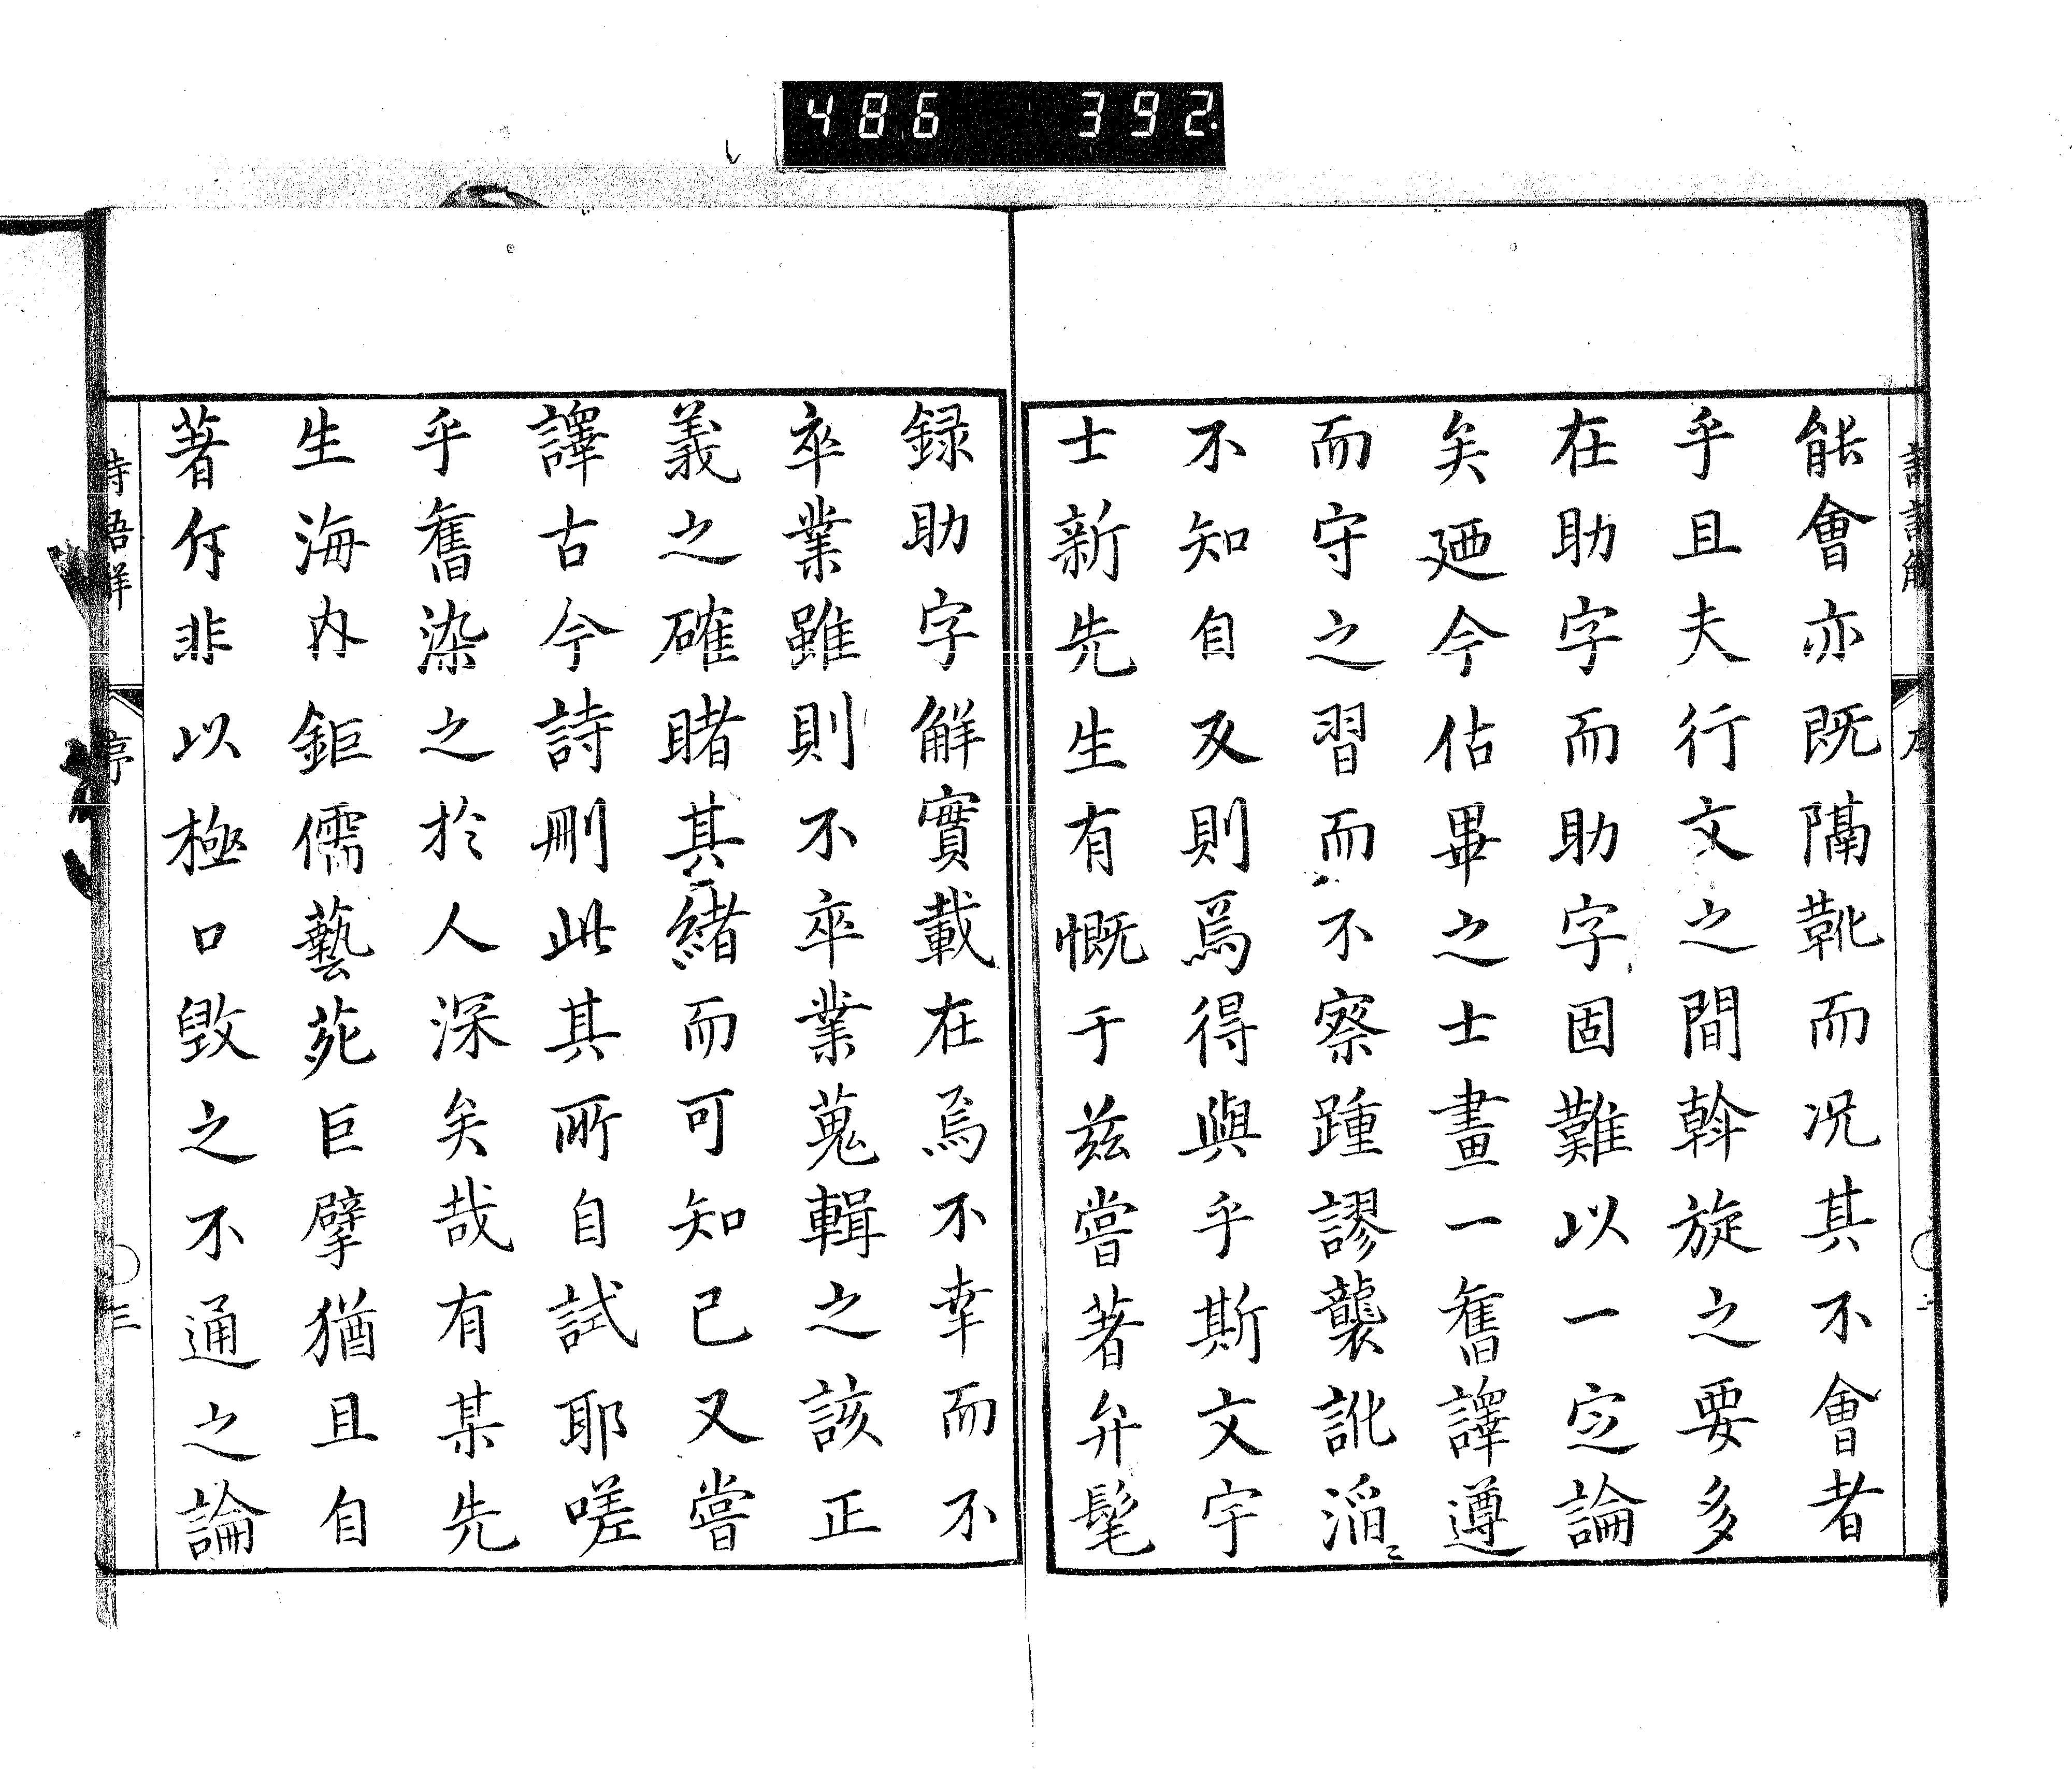 486 392
能會亦既隔靴而况其不會者
乎且夫行文之間斡旋之要多
在助字而助字固難以一定論
矣廼今佔畢之士畫一舊譯遵
而守之習而不察踵謬襲訛滔〻
不知自反則焉得與乎斯文宇
士新先生有慨于兹嘗著弁髦
録助字解實載在焉不幸而不
卒業雖則不卒業蒐輯之該正
義之確睹其緒而可知已又嘗
譯古今詩刪此其所自試耶嗟
乎舊染之於人深矣哉有某先
生海内鉅儒藝苑巨擘猶且自
著斥非以極口毀之不通之論
詩語解
三